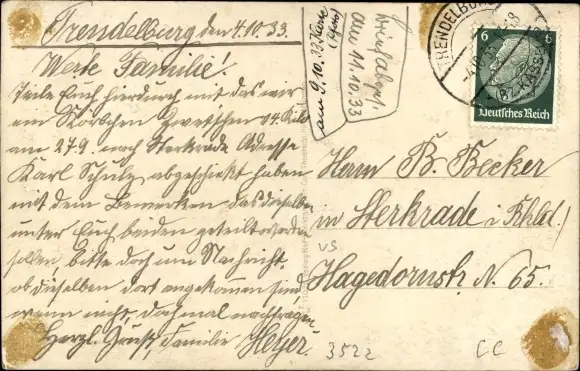 Trendelburg den 4.10.33
Werte Familie!
Teile Euch hierdurch mit das wir
ein Körbchen Zwetschen 14 Kilo
am 27.9. nach Sterkrade Adresse
Karl Schulz abgeschickt haben
mit dem Bemerken das dieselben
unter Euch beiden geteilt werden
sollen, bitte doch um Nachricht,
ob dieselben dort angekommen sind
wenn nicht, doch mal nachfragen
Herzl. Grüße, Familie Heyer.
am 9.10.33 Karte
am 11.10.33
TRENDELBURG
(BZ. KASSEL)
6 6
Deutsches Reich
Herrn B. Becker
in Sterkrade i/Rhld!
Hagedornstr. N. 65.
VS
3522
CC